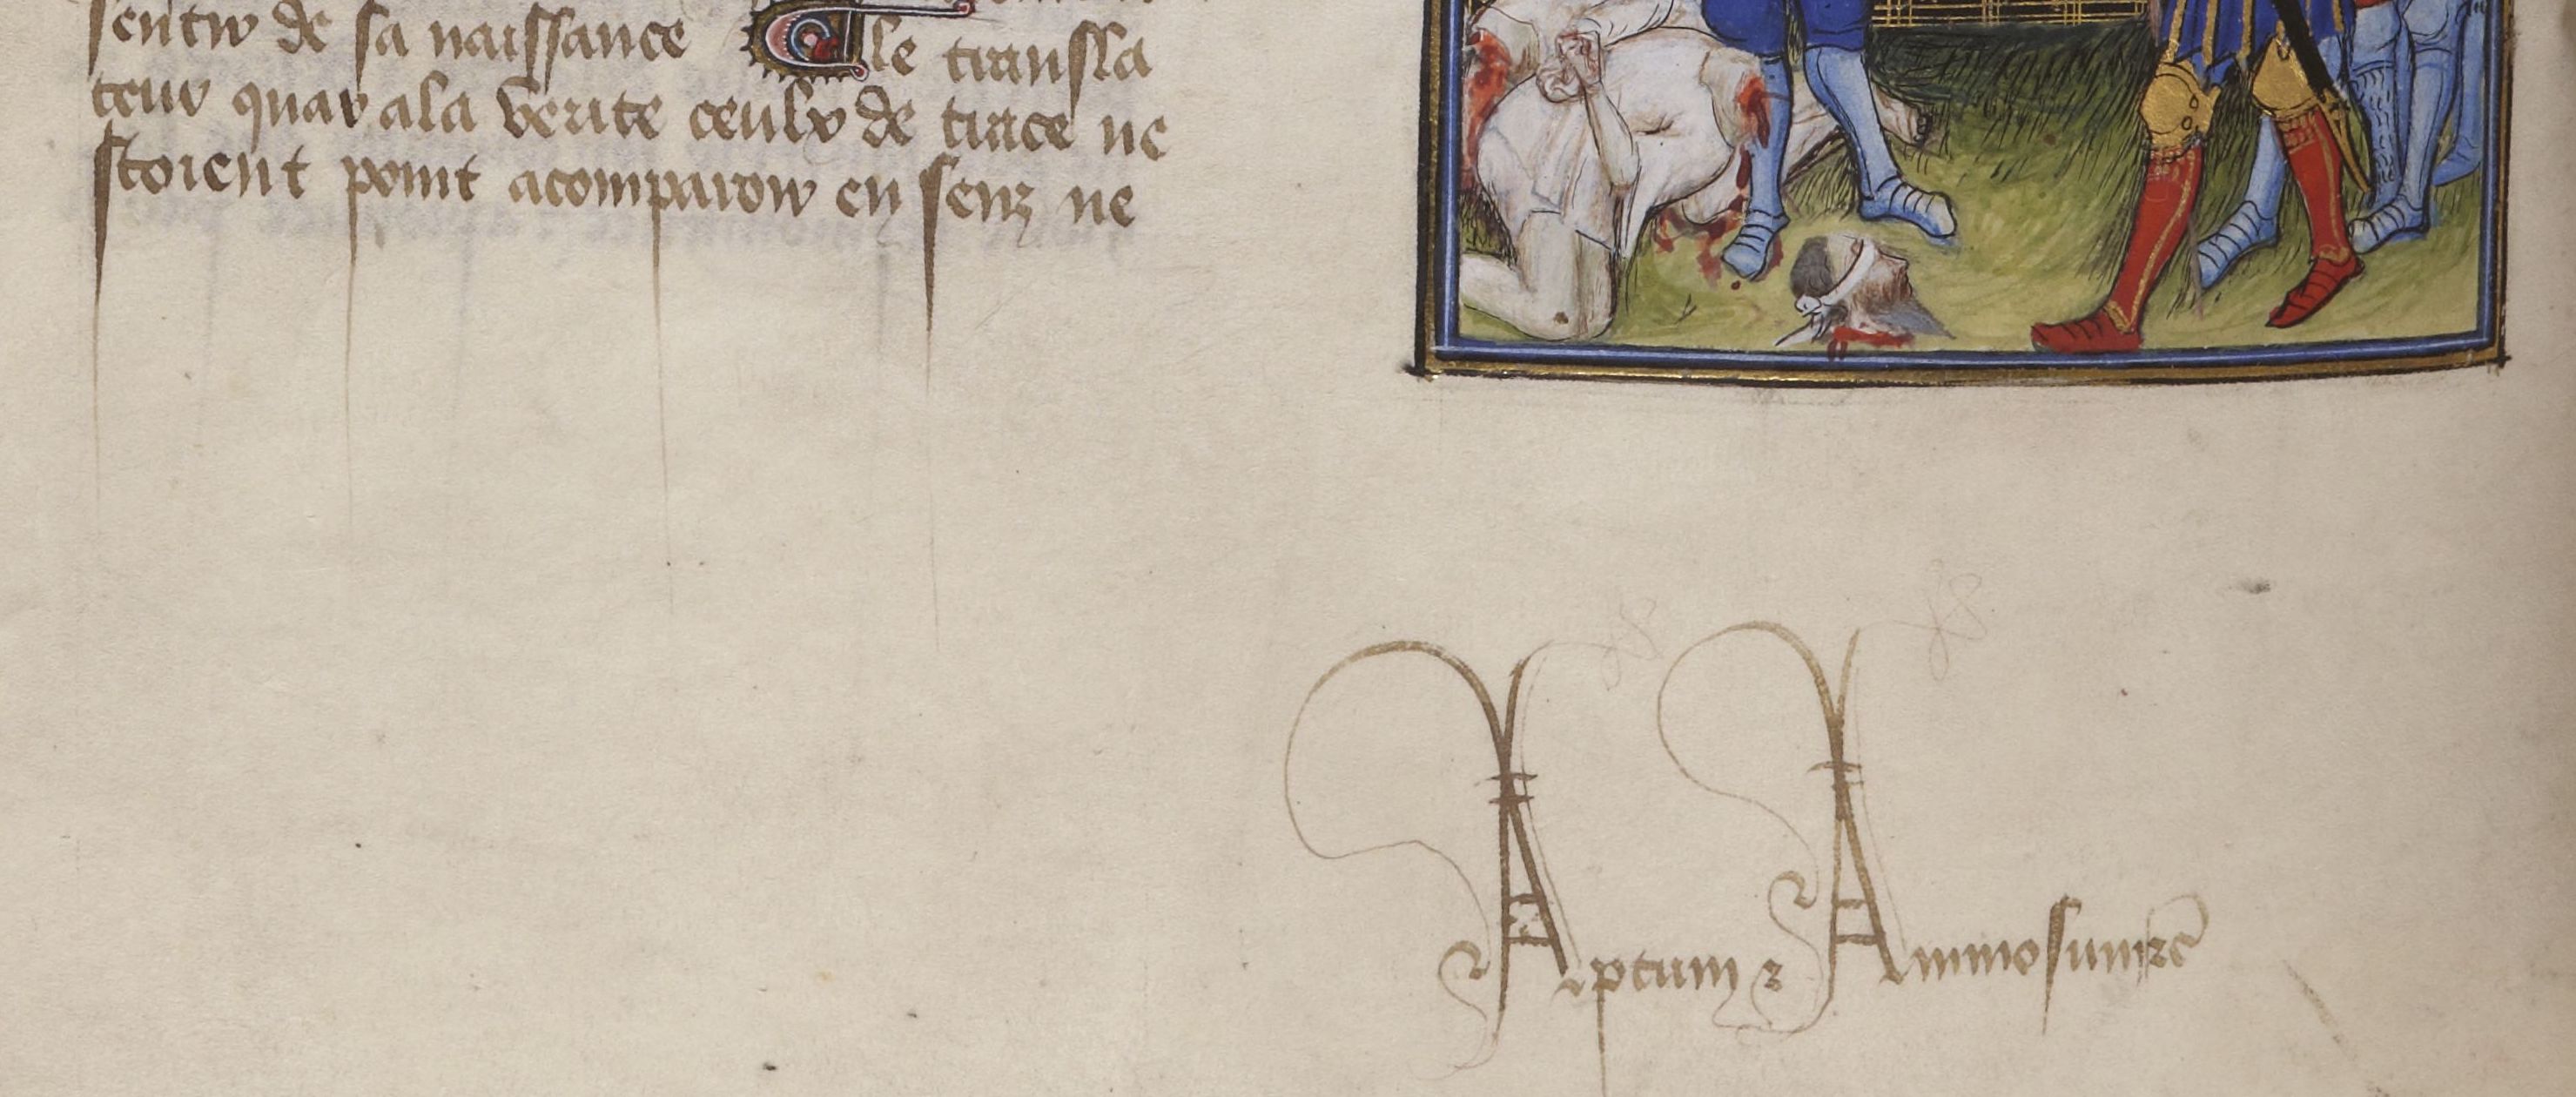 sentir de sa naissance Cle transla
teur quar ala verite ceulx de trace ne
stoient point acomparoir en senz ne
Aptum z Animosum